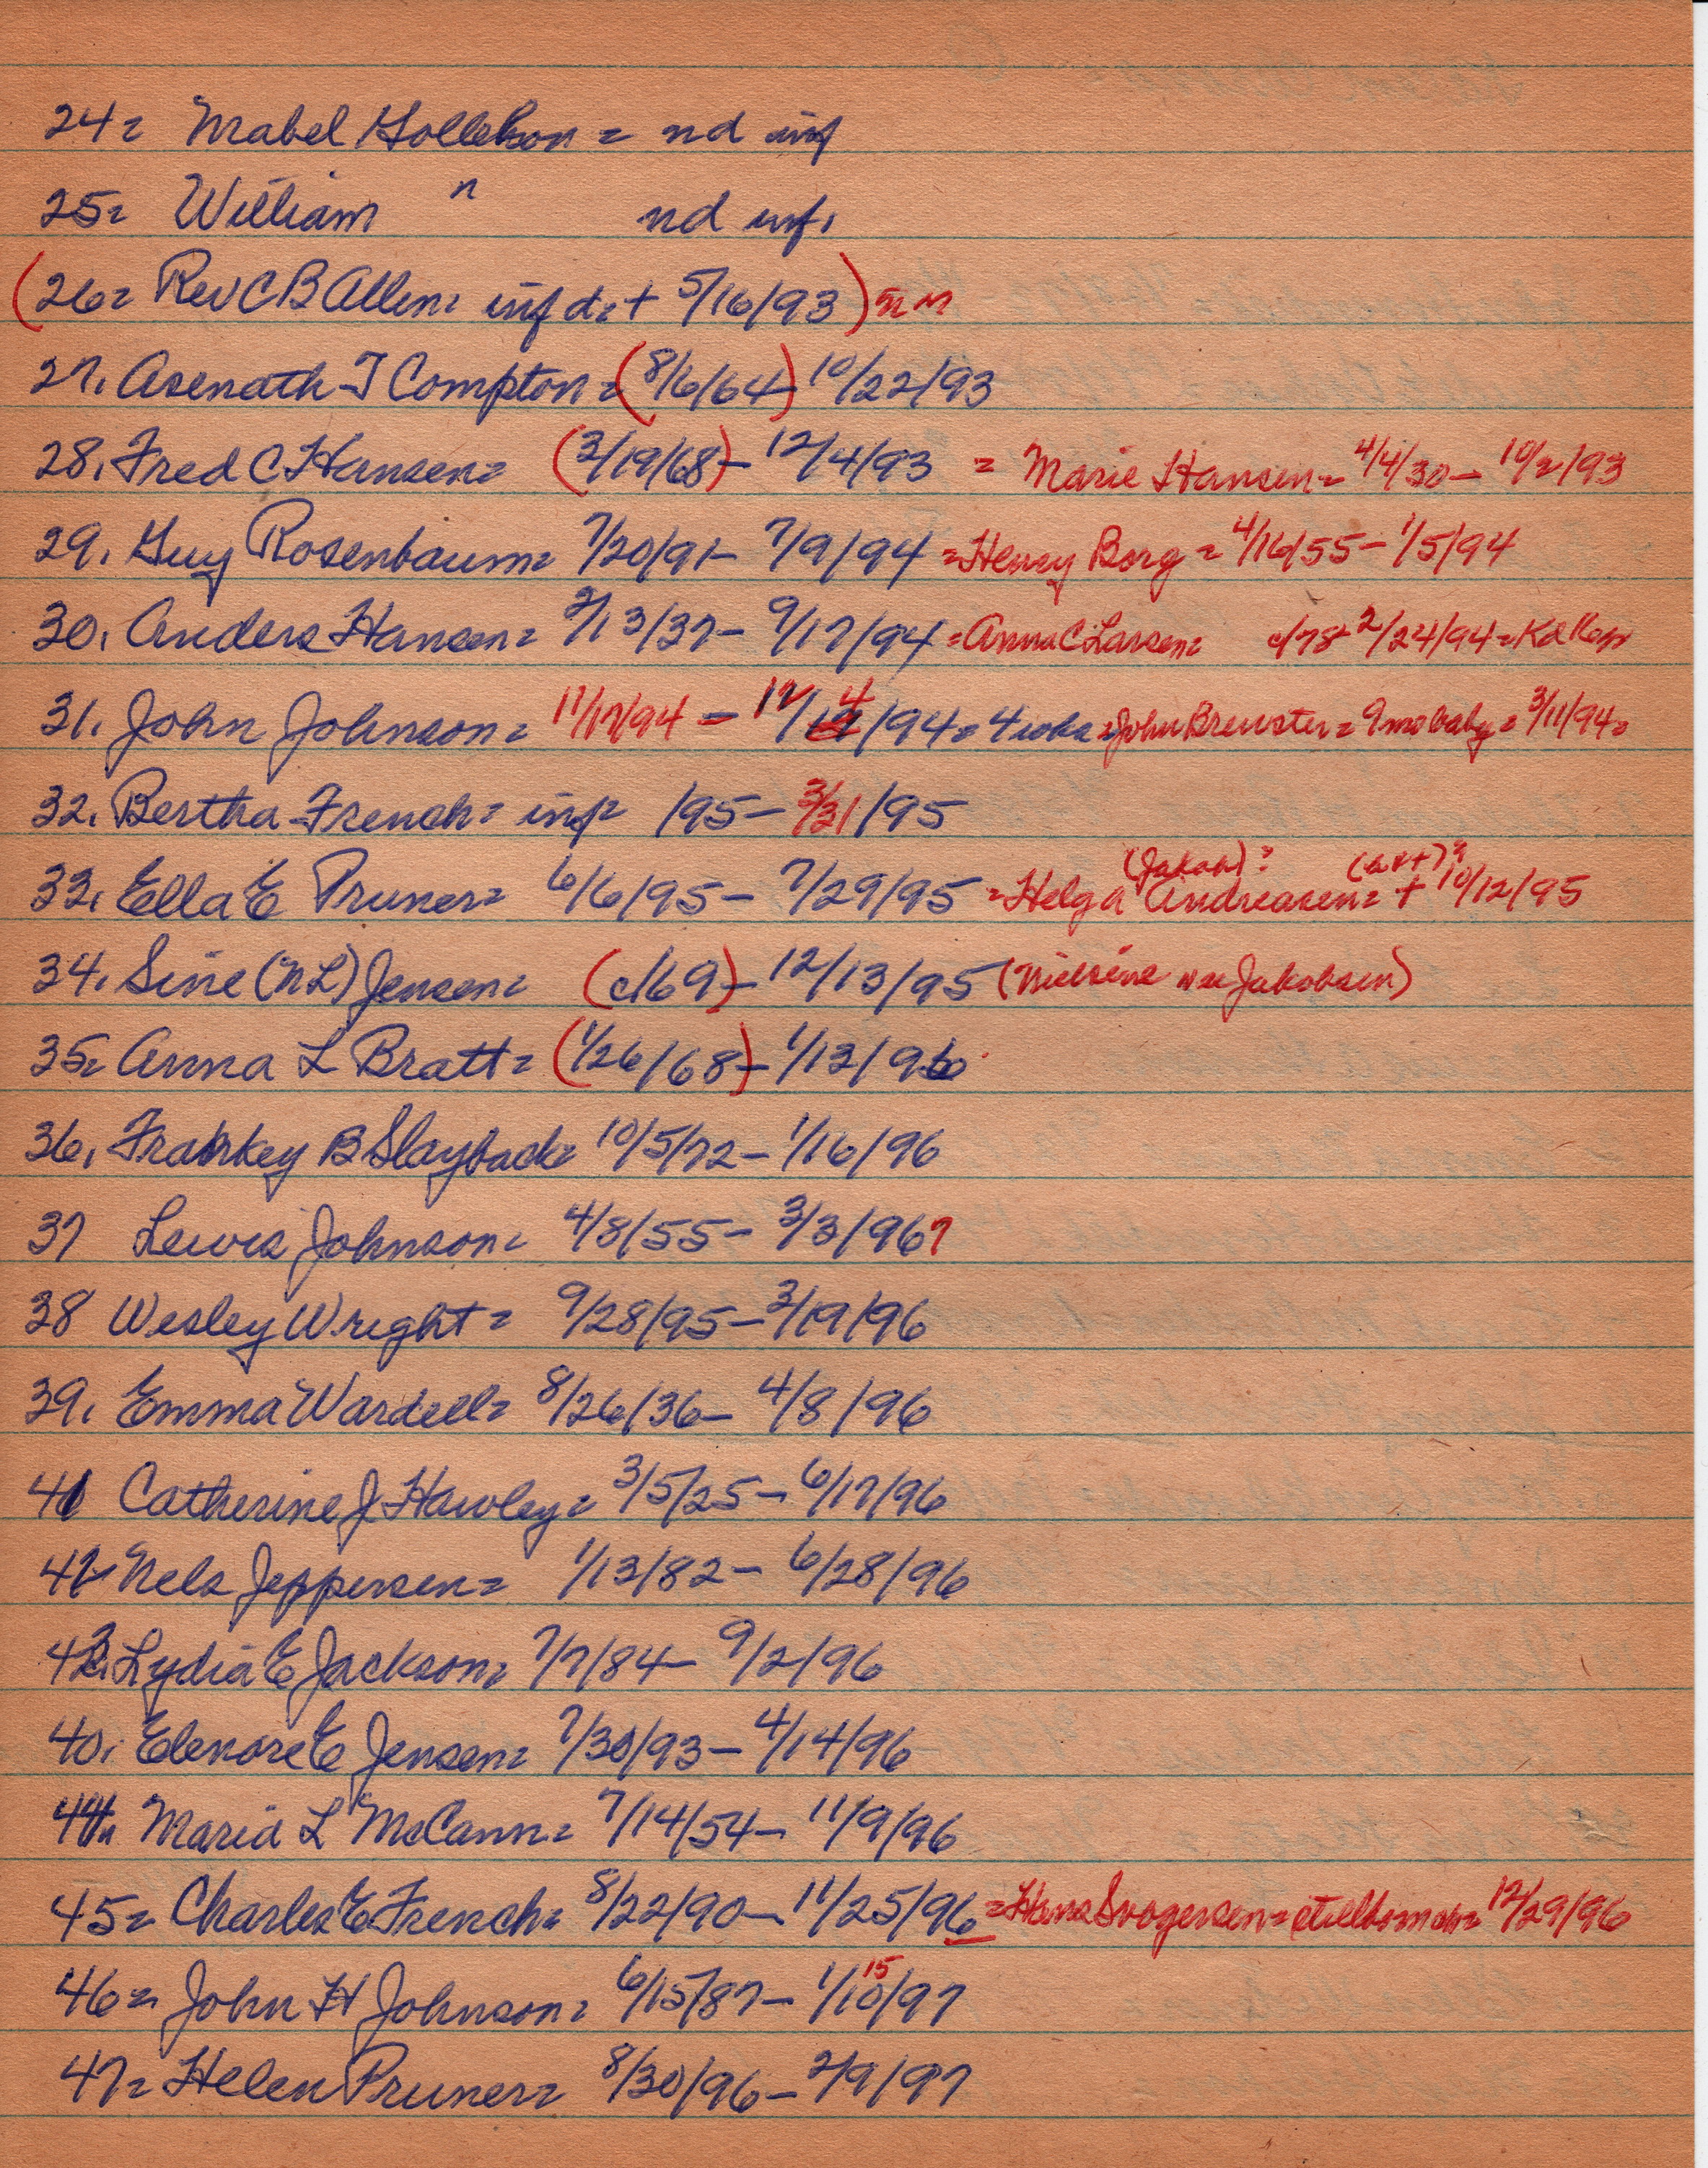 24= Mabel Gollehon = nd inf
25= William " nd inf.
(26= Rev C B Allen= inf d= + 5/16/93)
27. Asenath T Compton = (8/6/64)- 10/22/93
28. Fred C Hansen= (3/19/68)- 12/4/93 = Marie Hansen= 4/4/30- 10/2/93
29. Guy Rosenbaum= 7/20/91- 7/9/94 =Henry Borg = 4/16/55- 1/5/94
30. Anders Hansen= 2/13/37- 9/17/94 =Anna C Larsen= c/78+ 2/24/94=
31. John Johnson= 11/17/94 - 12/14/94= 4 wks =John Brewster= 9 mo baby= 3/11/94=
32. Bertha French= inf= /95- 3/31/95
33. Ella E Pruner= 6/6/95- 7/29/95 =Helga (Jakob)? Andreasen= + 10/12/95
34. Sine (N L) Jensen= (c/69)- 12/13/95 (Nielsine nee Jakobsen)
35= Anna L Bratt= (1/26/68)- 1/13/96
36. Frankey B Slayback= 10/5/72- 1/16/96
37 Lewis Johnson= 4/8/55- 3/3/967
38 Wesley Wright= 9/28/95- 3/19/96
39. Emma Wardell= 8/26/36- 4/8/96
41 Catherine J Hawley= 3/5/25- 6/17/96
42 Nels Jeppersen= 1/13/82- 6/28/96
43. Lydia E Jackson= 7/7/84- 9/2/96
40. Elenore E Jensen= 7/30/93- 4/14/96
44= Maria L McCann= 7/14/54- 11/9/96
45= Charles E French= 8/22/90- 11/25/96 =Hans Svogersen= stillborn ch= 12/29/96
46= John H Johnson= 6/15/87- 1/10/97 15
47= Helen Pruner= 8/30/96- 2/9/97